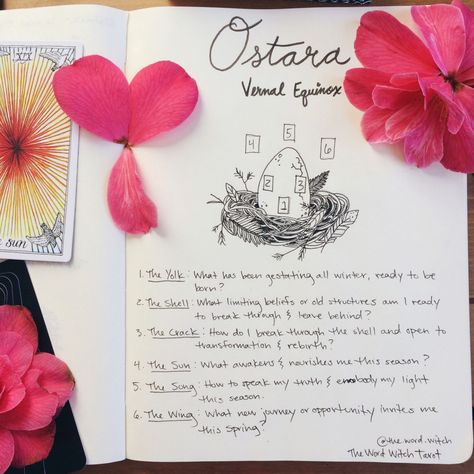 XIX
e sun
Ostara
Vernal Equinox
5
4 6
2 3
1
1. The Yolk: What has been gestating all winter, ready to be
born?
2. The Shell: What limiting beliefs or old structures am I ready
to break through & leave behind?
3. The Crack: How do I break through the shell and open to
transformation & rebirth?
4. The Sun: What awakens & nourishes me this season?
5. The Song: How to speak my truth & embody my light
this season.
6. The Wing: What new journey or opportunity invites me
this Spring?
@the.word.witch
The Word Witch Tarot